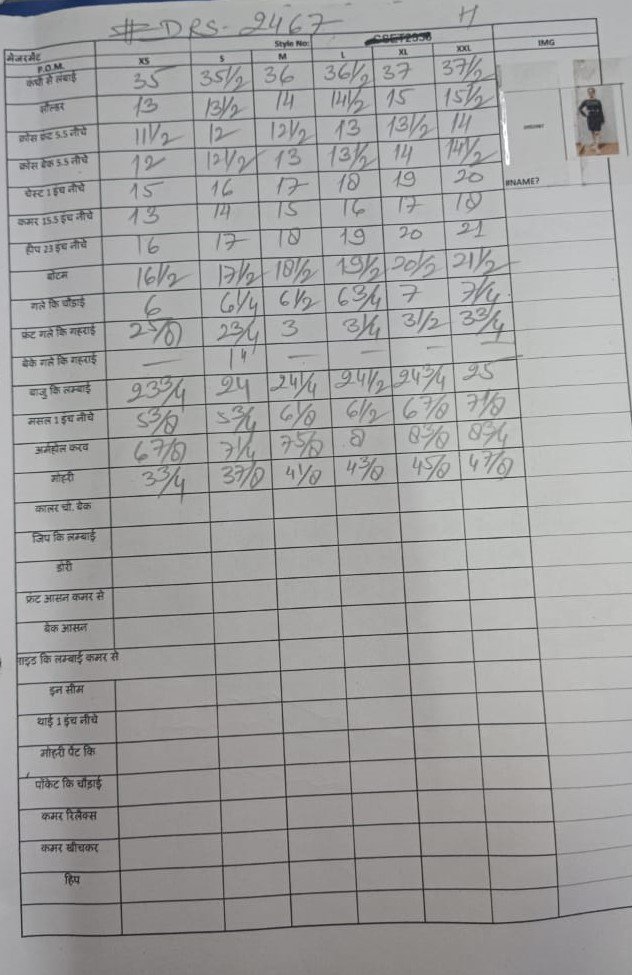 # DRS-2467 H
मेजरमेंट Style No: IMG
P.O.M. XS S M L XL XXL
कंधी से लंबाई 35 35 1/2 36 36 1/2 37 37 1/2
सोल्डर 13 13 1/2 14 14 1/2 15 15 1/2
क्रोस फ्रंट 5.5 नीचे 11 1/2 12 12 1/2 13 13 1/2 14
क्रोस बेक 5.5 नीचे 12 12 1/2 13 13 1/2 14 14 1/2
चेस्ट 1 इंच नीचे 15 16 17 18 19 20 #NAME?
कमर 15.5 इंच नीचे 13 14 15 16 17 18
हीप 23 इंच नीचे 16 17 18 19 20 21
बोटम 16 1/2 17 1/2 18 1/2 19 1/2 20 1/2 21 1/2
गले कि चौड़ाई 6 6 1/4 6 1/2 6 3/4 7 7 1/4
फ्रंट गले कि गहराई 2 5/8 2 3/4 3 3 1/4 3 1/2 3 3/4
बेके गले कि गहराई — 1" — — — —
बाजु कि लम्बाई 23 3/4 24 24 1/4 24 1/2 24 3/4 25
मसल 1 इंच नीचे 5 3/8 5 3/4 6 1/8 6 1/2 6 7/8 7 1/8
अर्महोल करव 6 7/8 7 1/4 7 5/8 8 8 3/8 8 3/4
मोहरी 3 3/4 3 7/8 4 1/8 4 3/8 4 5/8 4 7/8
कालर चौ. बेक
जिप कि लम्बाई
डोरी
फ्रंट आसन कमर से
बेक आसन
साइड कि लम्बाई कमर से
इन सीम
थाई 1 इंच नीचे
मोहरी पेंट कि
पॉकेट कि चौड़ाई
कमर रिलैक्स
कमर खीचकर
हिप